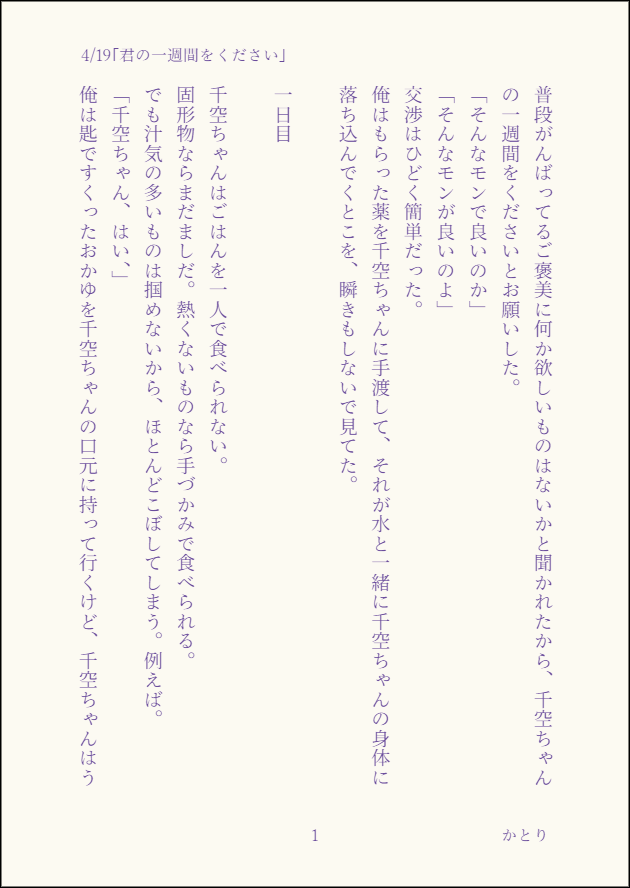 4/19「君の一週間をください」
普段がんばってるご褒美に何か欲しいものはないかと聞かれたから、千空ちゃん
の一週間をくださいとお願いした。
「そんなモンで良いのか」
「そんなモンが良いのよ」
交渉はひどく簡単だった。
俺はもらった薬を千空ちゃんに手渡して、それが水と一緒に千空ちゃんの身体に
落ち込んでくとこを、瞬きもしないで見てた。
一日目
千空ちゃんはごはんを一人で食べられない。
固形物ならまだましだ。熱くないものなら手づかみで食べられる。
でも汁気の多いものは掴めないから、ほとんどこぼしてしまう。例えば。
「千空ちゃん、はい、」
俺は匙ですくったおかゆを千空ちゃんの口元に持って行くけど、千空ちゃんはう
1
かとり